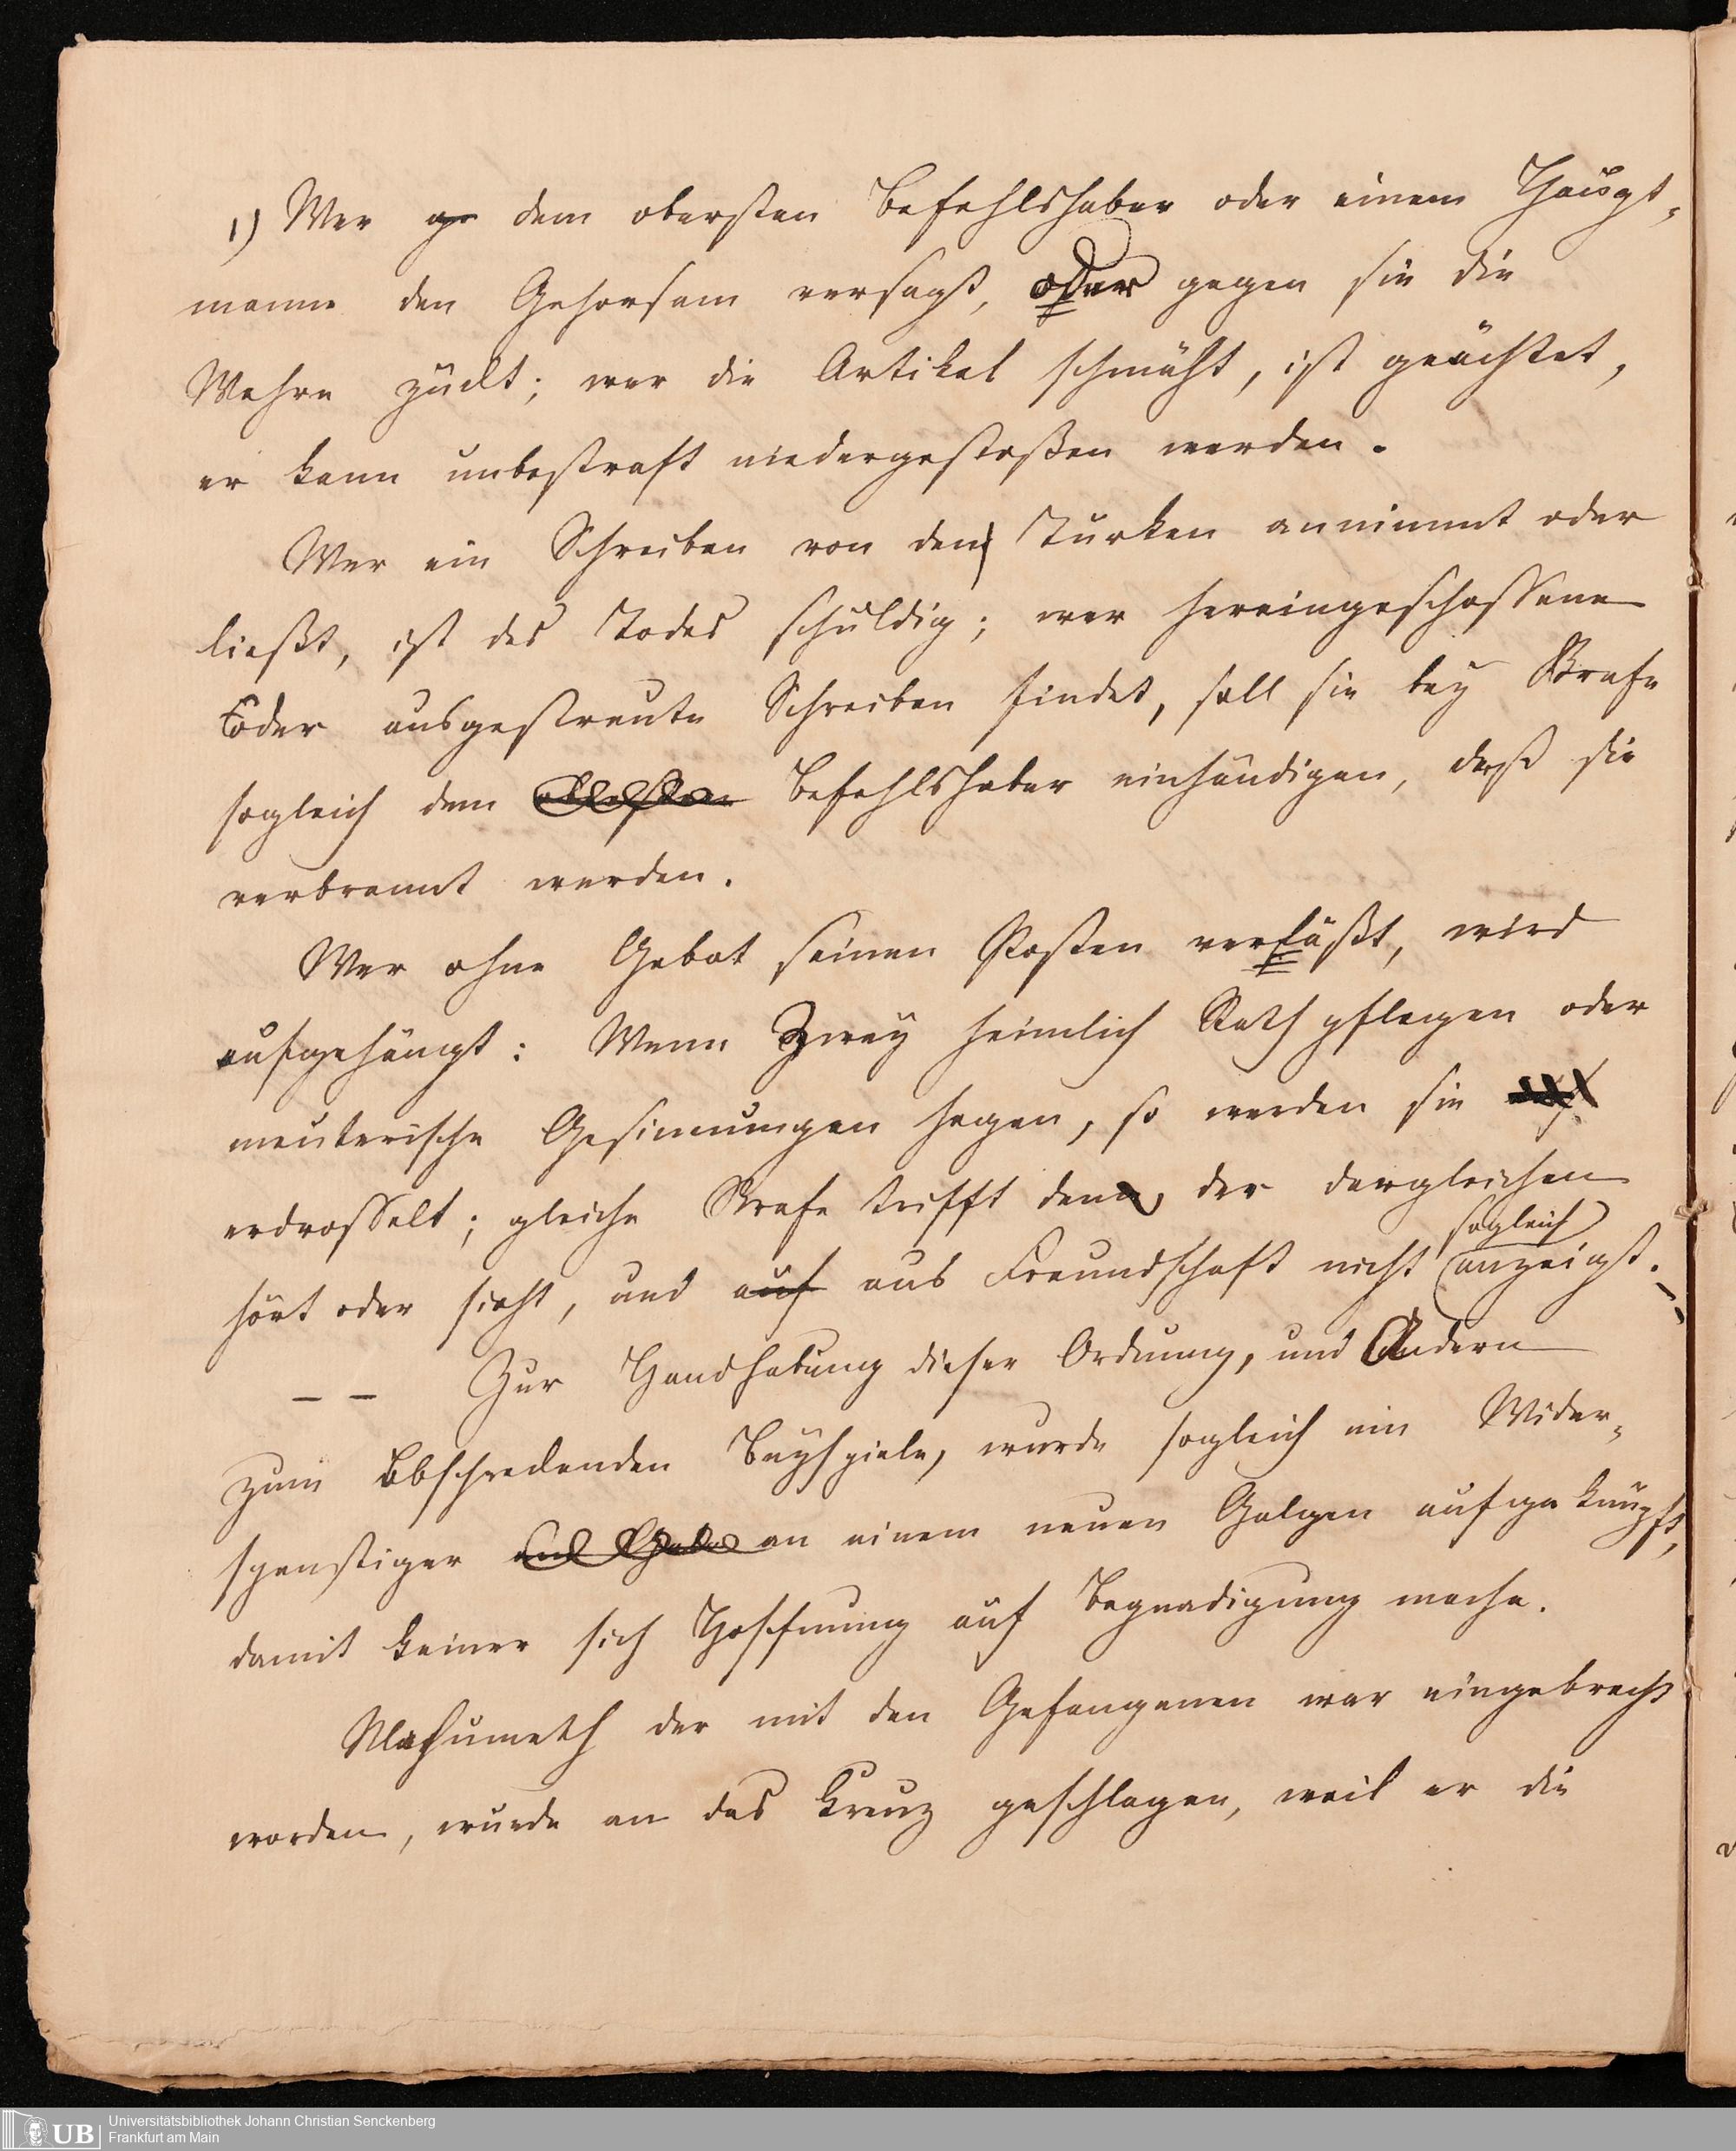 1) Wer ge dem obersten Befehlshaber oder einem Haupt-
manne den Gehorsam versagt, oder gegen sie die
Wehre zückt; wer die Artikel schmäht, ist geächtet,
er kann unbestraft niedergestoßen werden.
Wer ein Schreiben von den Türken annimmt oder
ließt, ist des Todes schuldig; wer hereingeschossene
oder ausgestreute Schreiben findet, soll sie bey Strafe
sogleich dem Befehlshaber einhändigen, daß sie
verbrannt werden.
Wer ohne Gebot seinen Posten verläßt, wird
aufgehängt: Wenn Zwey heimlich Rath pflegen oder
meuterische Gesinnungen hegen, so werden sie
erdrosselt; gleiche Strafe trifft den, der dergleichen
sogleich
hört oder sieht, und auf aus Freundschaft nicht anzeigt. –
– – Zur Handhabung dieser Ordnung, und Andern
zum abschreckenden Beyspiele, wurde sogleich ein Wider-
spenstiger an einem neuen Galgen aufgeknüpft,
damit keiner sich Hoffnung auf Begnadigung mache.
Mahumeth der mit den Gefangenen war eingebracht
worden, wurde an das Kreuz geschlagen, weil er die
Universitätsbibliothek Johann Christian Senckenberg
Frankfurt am Main
UB